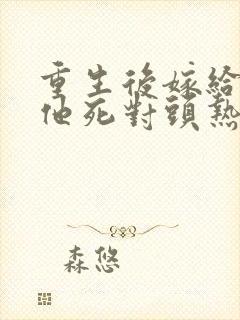 重生後嫁給
他死對頭熱
森悠